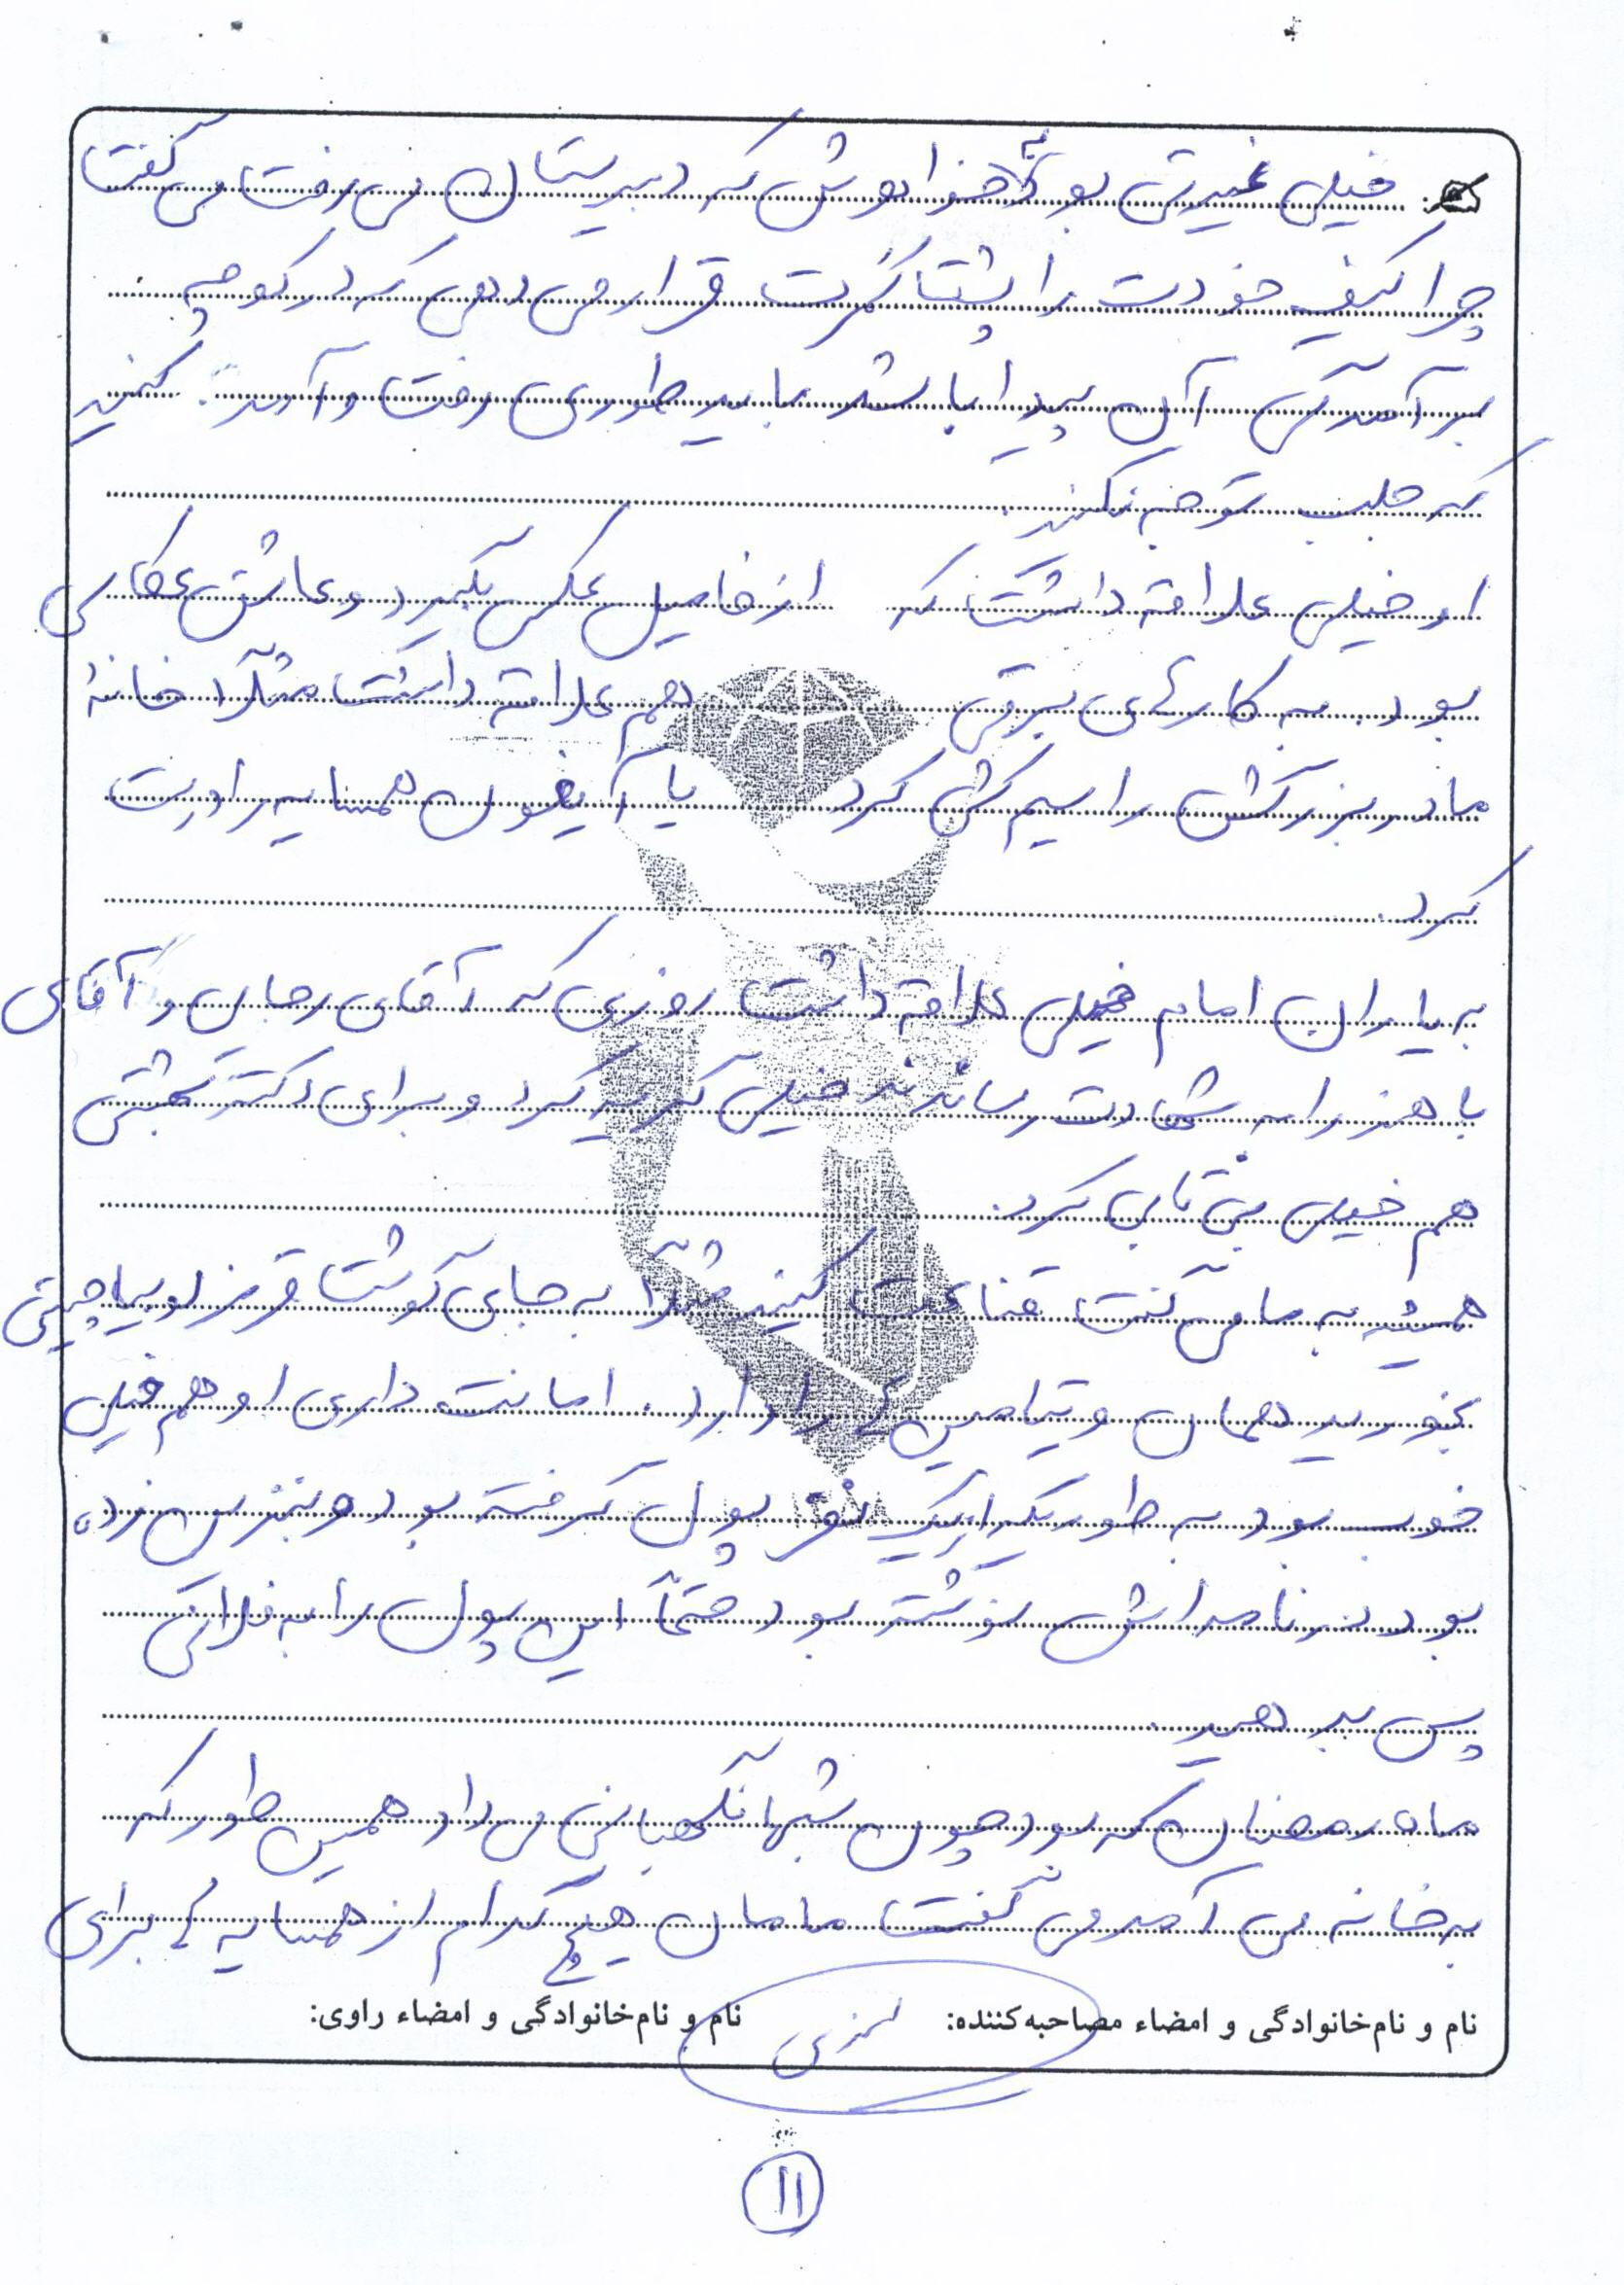 خیلی غیرتی بود خواهرش که دبیرستان می رفت می گفت
چرا کیف خودت را پشت کمرت قرار می دهی که در کوچه
برآمدگی آن پیدا باشد باید طوری رفت و آمد کنید
که جلب توجه نکند.
او خیلی علاقه داشت که از فامیل عکس بگیرد و عاشق عکاسی
بود. به کارهای برقی هم علاقه داشت مثلاً خانهٔ
مادربزرگش را سیم کشی کرد یا آیفون همسایه را درست
کرد.
به یاران امام خیلی علاقه داشت روزی که آقای رجایی و آقای
باهنر را به شهادت رساندند خیلی گریه کرد و برای دکتر بهشتی
هم خیلی بی تابی کرد.
همیشه به ما می گفت قناعت کنید مثلاً به جای گوشت قرمز لوبیا چیتی
بخورید همان ویتامین ها را دارد. امانت داری او هم خیلی
خوب بود به طوریکه از یک نفر پول گرفته بود و بنزین زده
بود در نامه اش نوشته بود حتماً این پول را به فلانی
پس بدهید.
ماه رمضان که بود چون شبها نگهبانی می داد همین طور که
به خانه می آمد می گفت مامان هیچ کدام از همسایه ها برای
نام و نام‌خانوادگی و امضاء مصاحبه‌کننده: نام و نام‌خانوادگی و امضاء راوی:
۱۱